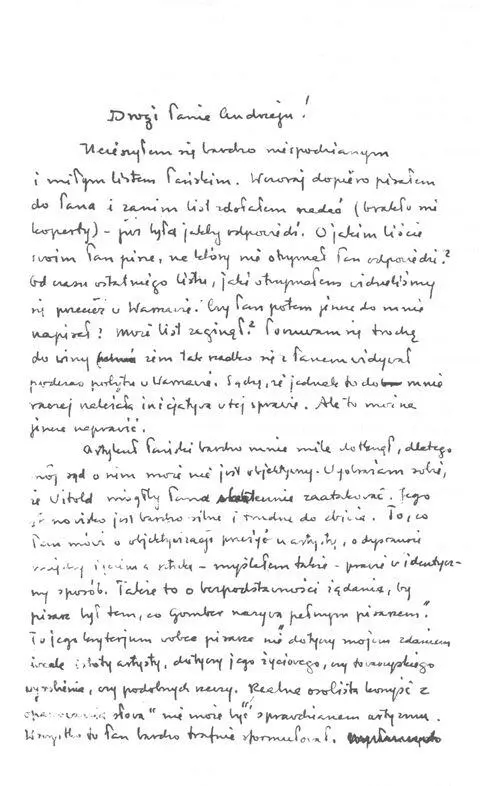 Drogi Panie Andrzeju!
Ucieszyłem się bardzo niespodzianym
i miłym listem Pańskim. Wczoraj dopiero pisałem
do Pana i zanim list zdołałem nadać (brakło mi
koperty) – już była jakby odpowiedź. O jakim liście
swoim Pan pisze, na który nie otrzymał Pan odpowiedzi?
Od czasu ostatniego listu, jaki otrzymałem widzieliśmy
się przecież w Warszawie. Czy Pan potem jeszcze do mnie
napisał? Może list zaginął? Poczuwam się trochę
do winy żem tak rzadko się z Panem widywał
podczas pobytu w Warszawie. Sądzę, że jednak to do mnie
raczej należała inicjatywa w tej sprawie. Ale to można
jeszcze naprawić.
Artykuł Pański bardzo mnie mile dotknął, dlatego
mój sąd o nim może nie jest objektywny. Wyobrażam sobie,
że Witold mógłby Pana zaatakować. Jego
stanowisko jest bardzo silne i trudne do zbicia. To, co
Pan mówi o objektywizacji przeżyć u artysty, o dystansie
między życiem a sztuką – myślałem także – prawie w identycz-
ny sposób. Także to o bezpodstawności żądania, by
pisarz był tem, co Gombr nazywa pełnym pisarzem".
To jego kryterjum wobec pisarza nie dotyczy mojem zdaniem
wcale istoty artysty, dotyczy jego życiowego, czy towarzyskiego
wyrobienia, czy podobnych rzeczy. Realna osobista korzyść z
"opanowania słowa" nie może być sprawdzianem artyzmu.
Wszystko to Pan bardzo trafnie sformułował.